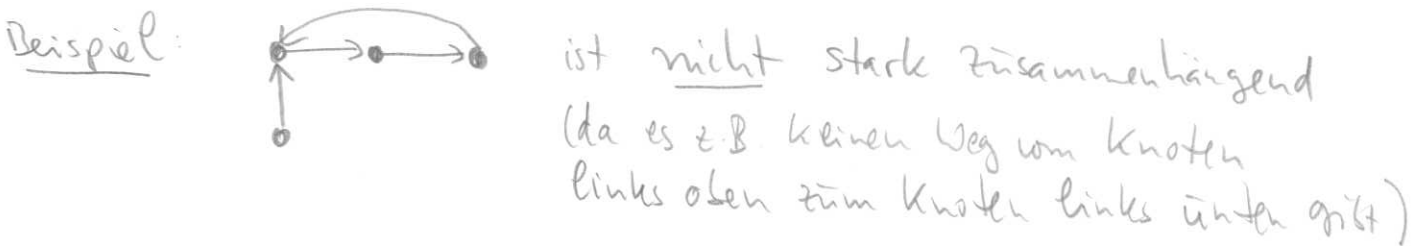 Beispiel: ist nicht stark zusammenhängend
(da es z.B. keinen Weg vom Knoten
links oben zum Knoten links unten gibt)